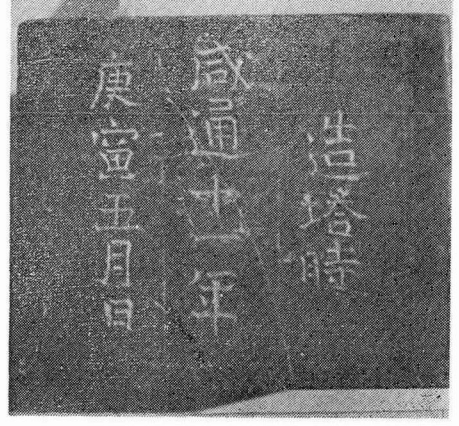 造塔時
咸通十一年
庚寅五月日